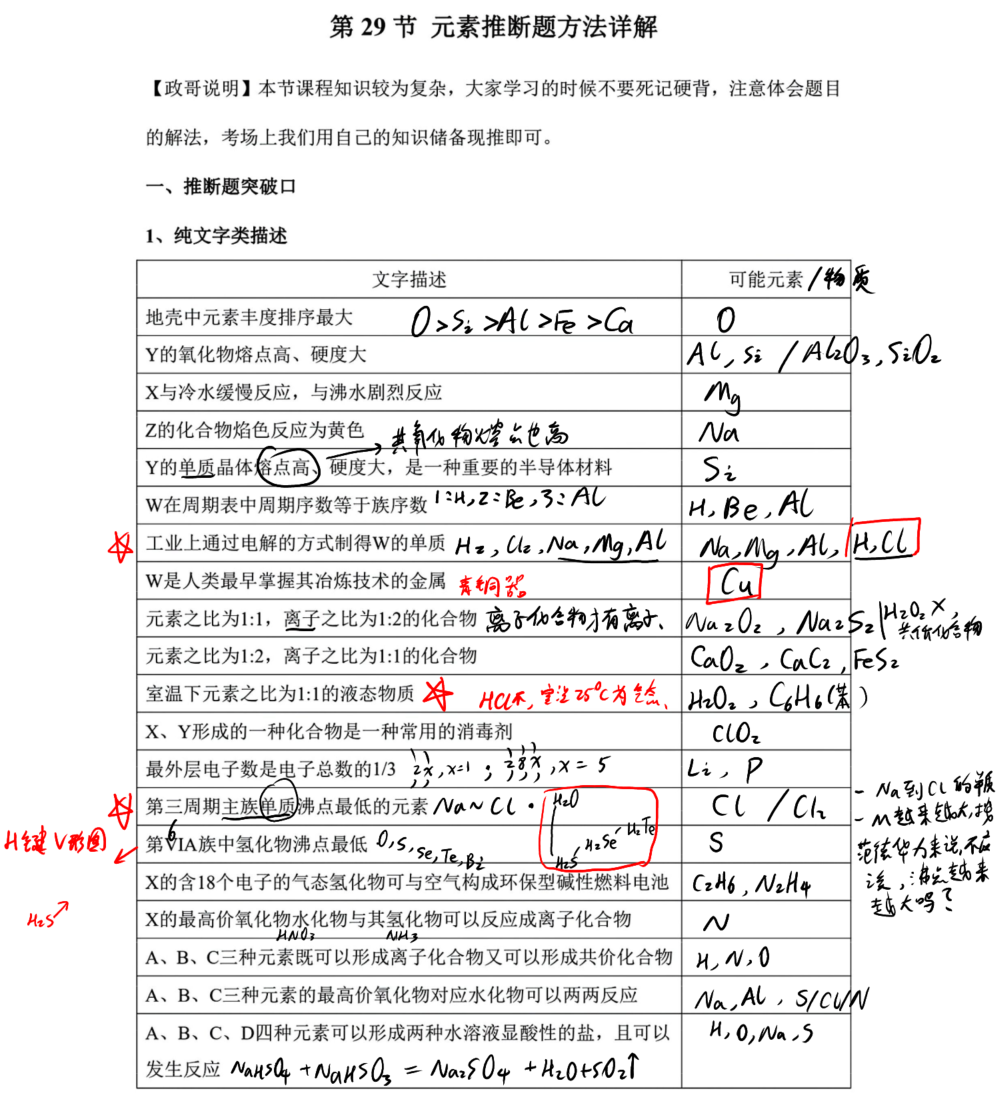 第 29 节 元素推断题方法详解
【政哥说明】本节课程知识较为复杂，大家学习的时候不要死记硬背，注意体会题目
的解法，考场上我们用自己的知识储备现推即可。
一、推断题突破口
1、纯文字类描述
文字描述 可能元素 /物质
地壳中元素丰度排序最大 O>Si>Al>Fe>Ca O
Y的氧化物熔点高、硬度大 Al, Si / Al2O3, SiO2
X与冷水缓慢反应，与沸水剧烈反应 Mg
Z的化合物焰色反应为黄色 Na
其氧化物熔点也高
Y的单质晶体熔点高、硬度大，是一种重要的半导体材料 Si
W在周期表中周期序数等于族序数 1:H, 2:Be, 3:Al H, Be, Al
工业上通过电解的方式制得W的单质 H2, Cl2, Na, Mg, Al Na, Mg, Al, H, Cl
W是人类最早掌握其冶炼技术的金属 青铜器 Cu
元素之比为1:1，离子之比为1:2的化合物 离子化合物才有离子、 Na2O2, Na2S2 | H2O2 X,
共价化合物
元素之比为1:2，离子之比为1:1的化合物 CaO2, CaC2, FeS2
室温下元素之比为1:1的液态物质 HCl不, 室温25℃为气态、 H2O2, C6H6(苯)
X、Y形成的一种化合物是一种常用的消毒剂 ClO2
最外层电子数是电子总数的1/3 2x, x=1; 28x, x=5 Li, P
第三周期主族单质沸点最低的元素 Na~Cl· Cl / Cl2
- Na到Cl的
- M越来越大, 按
范德华力来说, 不应
该, 沸点越来
越大吗?
H2O
H2S H2Se H2Te
第VIA族中氢化物沸点最低 6 O, S, Se, Te, Bi S
H键 V形图
H2S
X的含18个电子的气态氢化物可与空气构成环保型碱性燃料电池 C2H6, N2H4
X的最高价氧化物水化物与其氢化物可以反应成离子化合物 N
HNO3 NH3
A、B、C三种元素既可以形成离子化合物又可以形成共价化合物 H, N, O
A、B、C三种元素的最高价氧化物对应水化物可以两两反应 Na, Al, S/Cl/N
A、B、C、D四种元素可以形成两种水溶液显酸性的盐，且可以 H, O, Na, S
发生反应 NaHSO4 + NaHSO3 = Na2SO4 + H2O+SO2↑